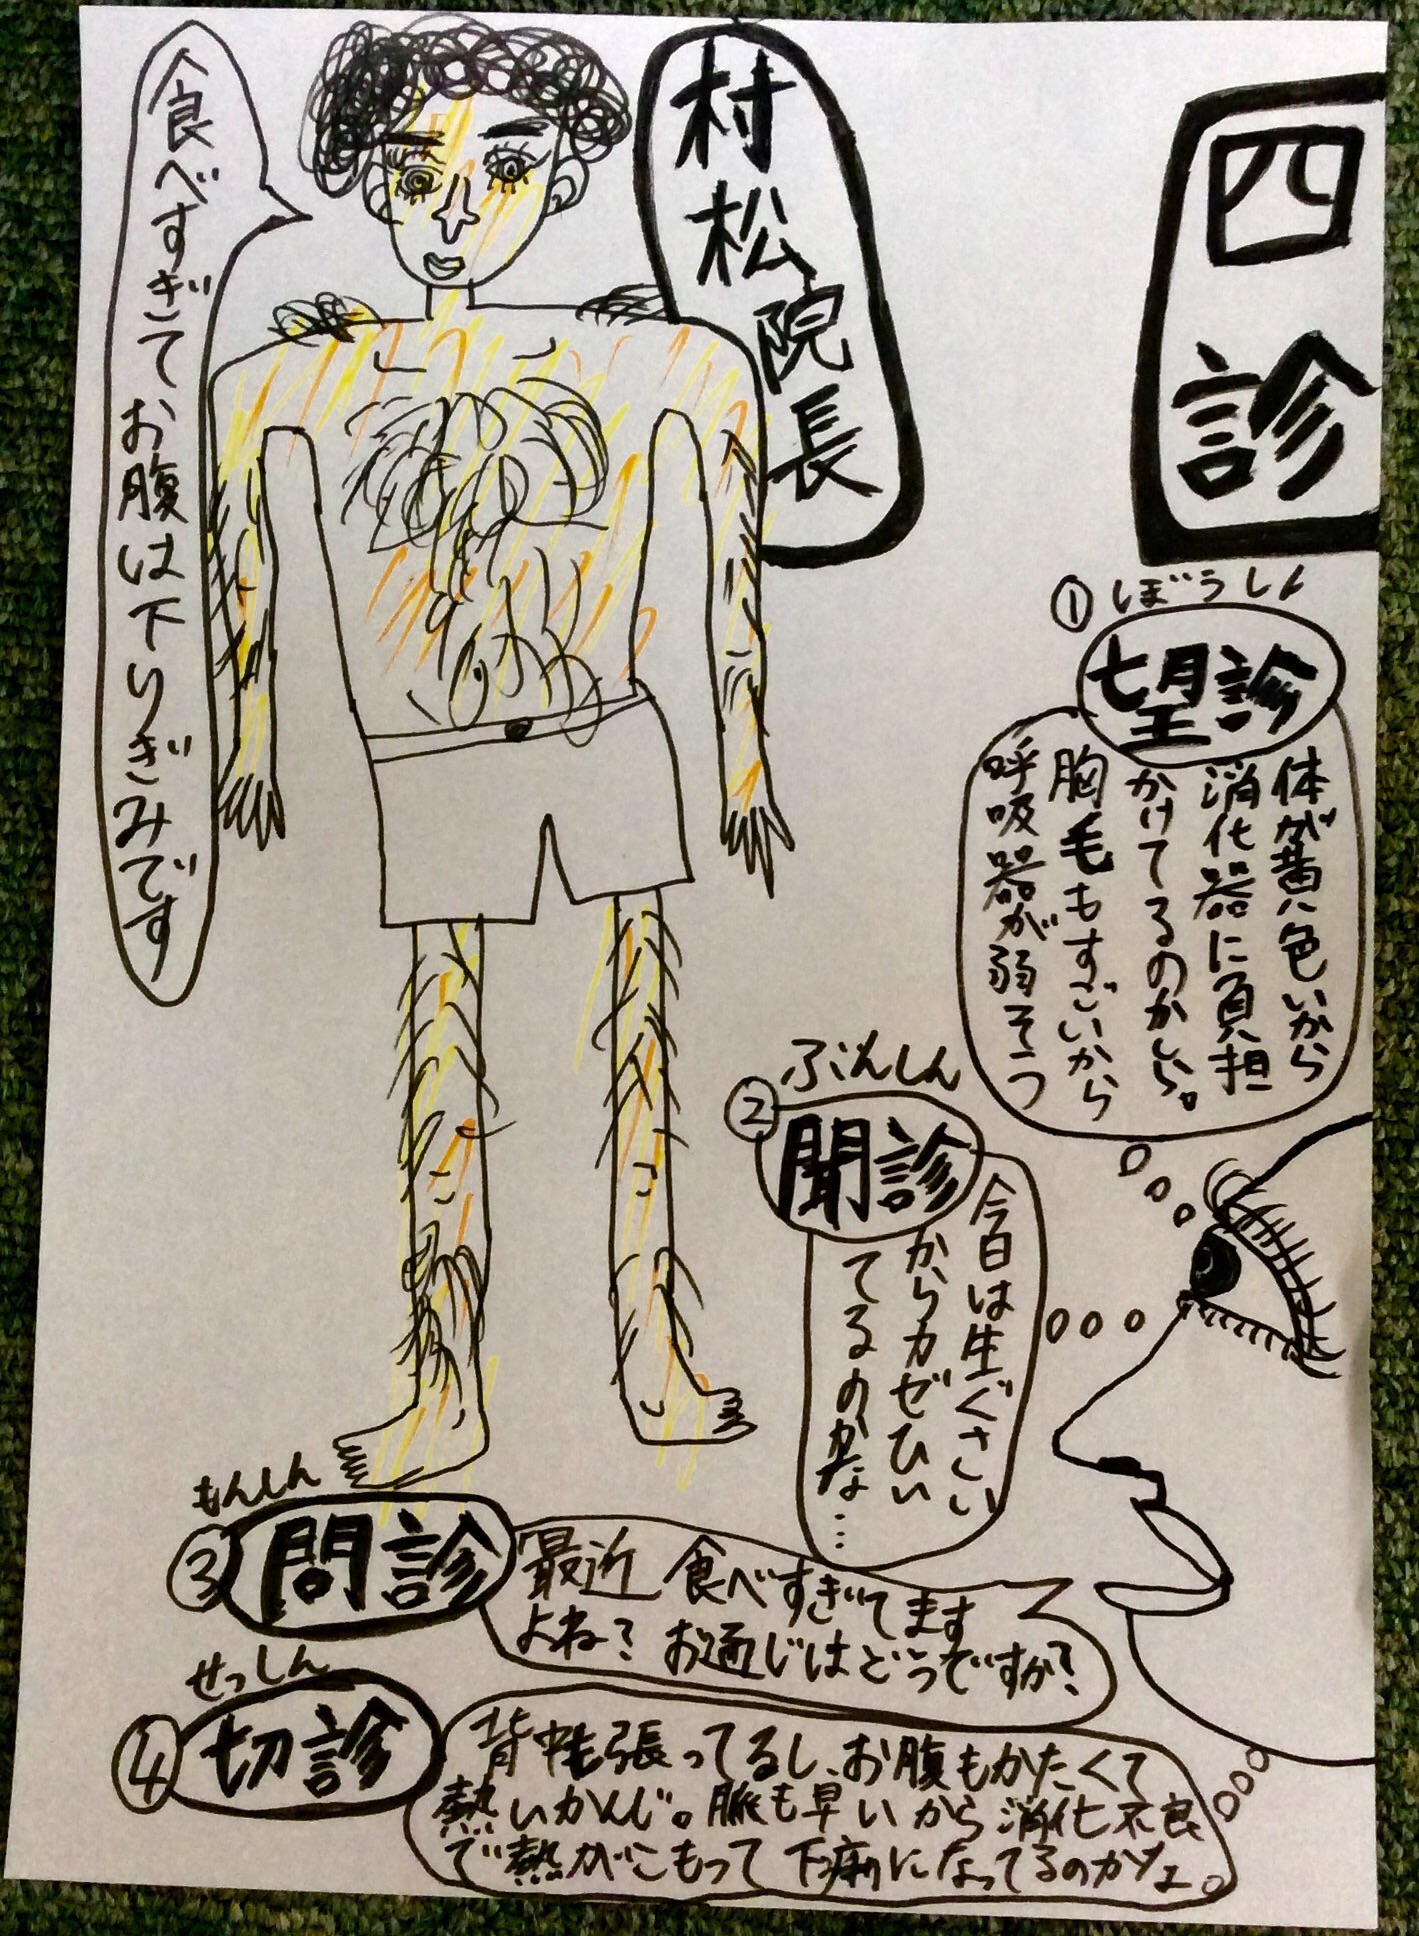 四診
村松院長
食べすぎてお腹は下りぎみです
① ぼうしん
望診
体が黄色いから
消化器に負担
かけてるのかしら。
胸毛もすごいから
呼吸器が弱そう
② ぶんしん
聞診
今日は生ぐさい
からカゼひい
てるのかな…
③ もんしん
問診
最近 食べすぎてます
よね? お通じはどうですか?
④ せっしん
切診
背中も張ってるし、お腹もかたくて
熱いかんじ。脈も早いから消化不良
で熱がこもって下痢になってるのかな。